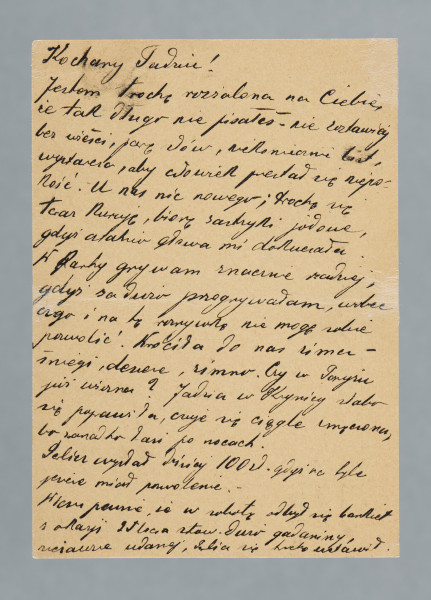 Kochany Tadziu!
Jestem trochę rozżalona na Ciebie,
że tak długo nie pisałeś - nie zostawiaj
bez wieści, parę słów, niekoniecznie list,
wystarcza, aby człowiek przestał się niepo-
koić. U nas nic nowego; trochę się
teraz kuruję, biorę zastrzyki jodowe,
gdyż ostatnio głowa mi dokuczała.
W karty grywam znacznie rzadziej,
gdyż za dużo przegrywałam, wobec
czego i na tę rozrywkę nie mogę sobie
pozwolić. Wróciła do nas zima -
śniegi, deszcze, zimno. Czy w Paryżu
już wiosna? Jadzia w Krynicy słabo
się poprawiła, czuje się ciągle zmęczona,
bo za mało śpi po nocach.
Felicz wysłał dzisiaj 100 zł. gdyż na tyle
jeszcze miał pozwolenie. -
Wiesz pewnie, że w sobotę odbył się bankiet
z okazji 25 lecia dużo gadaniny,
udany, się trochę wstawił.